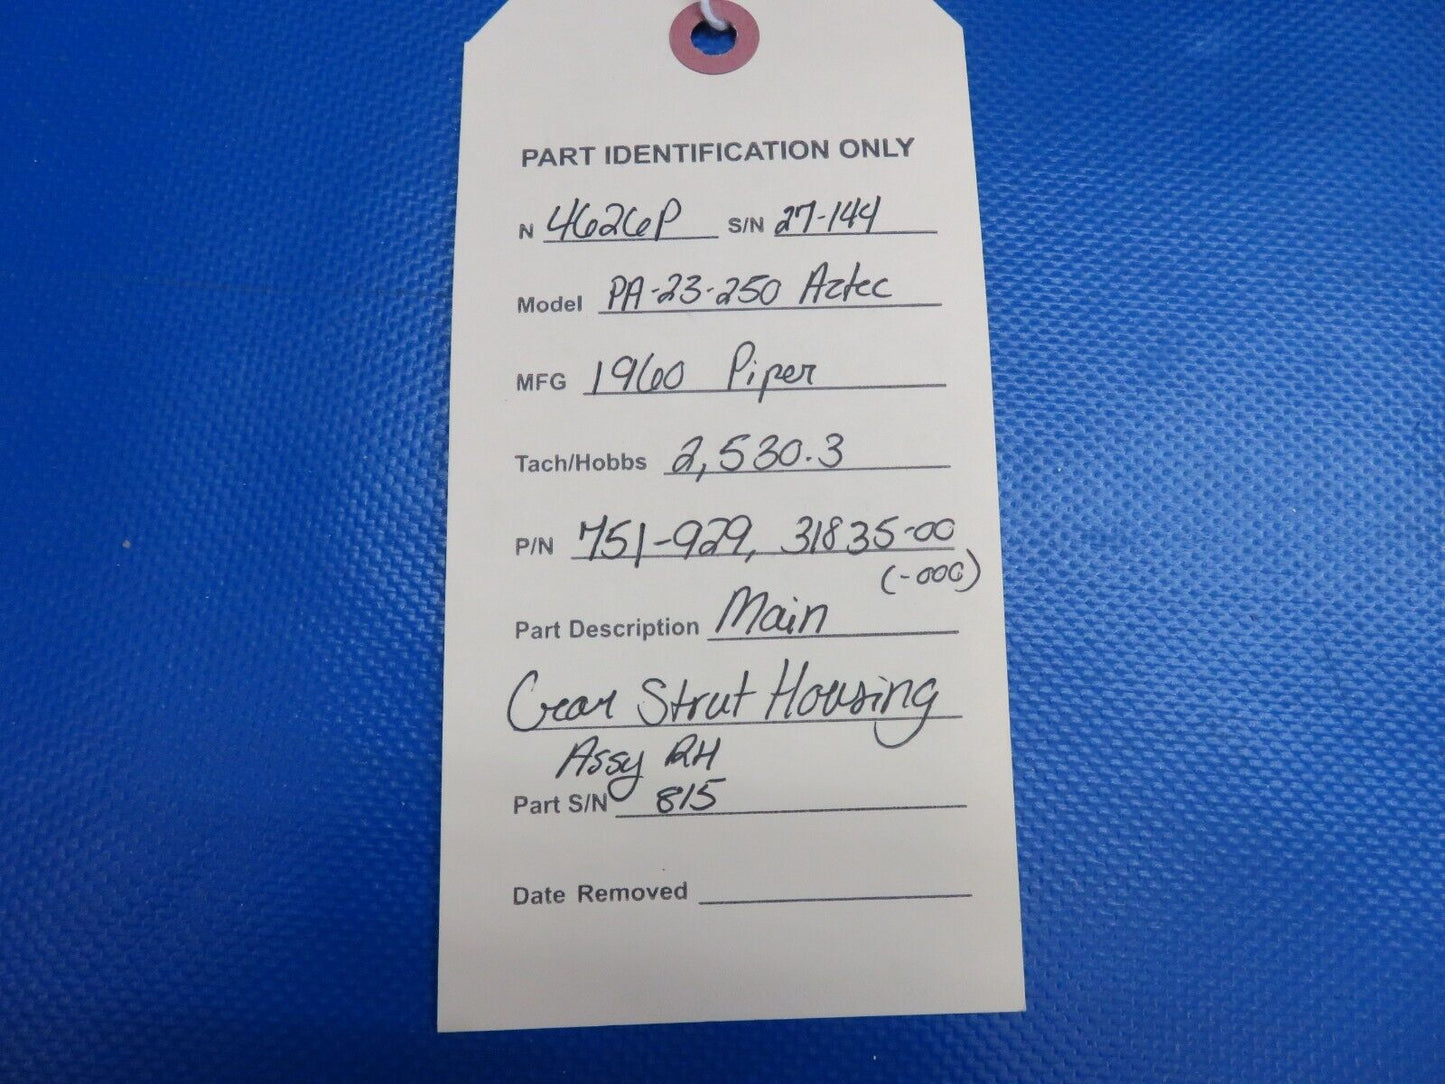 PART IDENTIFICATION ONLY
N 4626P S/N 27-144
Model PA-23-250 Aztec
MFG 1960 Piper
Tach/Hobbs 2,530.3
P/N 751-929, 31835-00
(-000)
Part Description Main
Gear Strut Housing
Assy RH
Part S/N 815
Date Removed